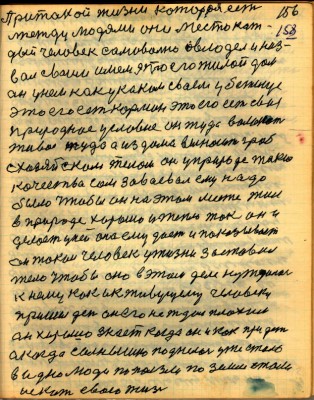 При такой жизни которая есть 156
между людями они место каж- 158
дый человек самовольно овладел и наз-
вал своим имем это его жилой дом
он у нем как у каком своем убежище
это его сет кормит это его сет свои
природное условие он туда
живое туда а из дома выносит гроб
с хозяйским телом он у природе такие
качества сам завоевал ему надо
было чтобы он на этом месте жил
в природе хорошо и тепло так он и
делает ей она ему дает и показывает
он такой человек у жизни заставил
тело чтобы оно в этом деле нуждалось
к нему как к живущему человеку
пришел ден он его не ждал плохий
он хорошо знает когда он и как придет
а когда солнышко поднялося уже стало
видно люди поползли по земли стали
искать своего жизни